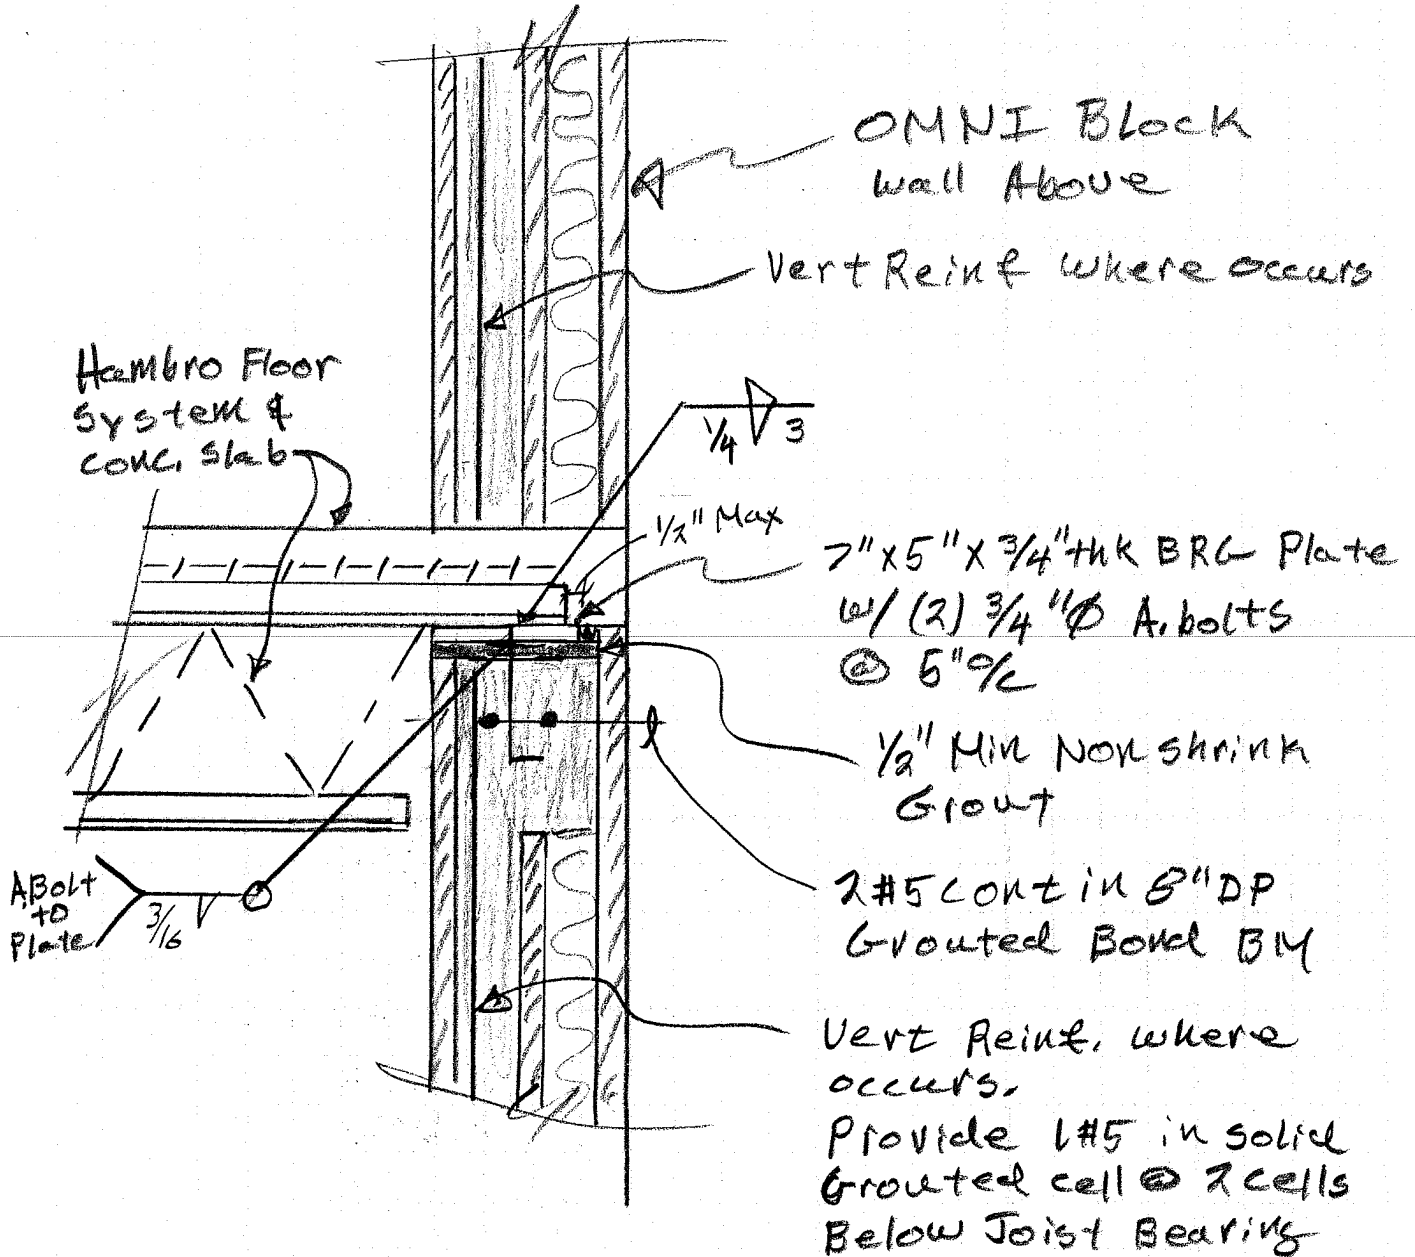 OMNI Block
Wall Above
Vert Reinf where occurs
Hambro Floor
System &
Conc. Slab
1/4 3
1/2" Max
7" x 5" x 3/4" thk BRG Plate
w/ (2) 3/4"Ø A. bolts
@ 5" o/c
1/2" Min Non shrink
Grout
2 #5 Cont in 8" DP
Grouted Bond BM
A.Bolt
to
Plate
3/16
Vert Reinf. where
occurs.
Provide 1#5 in solid
Grouted cell @ 2 cells
Below Joist Bearing